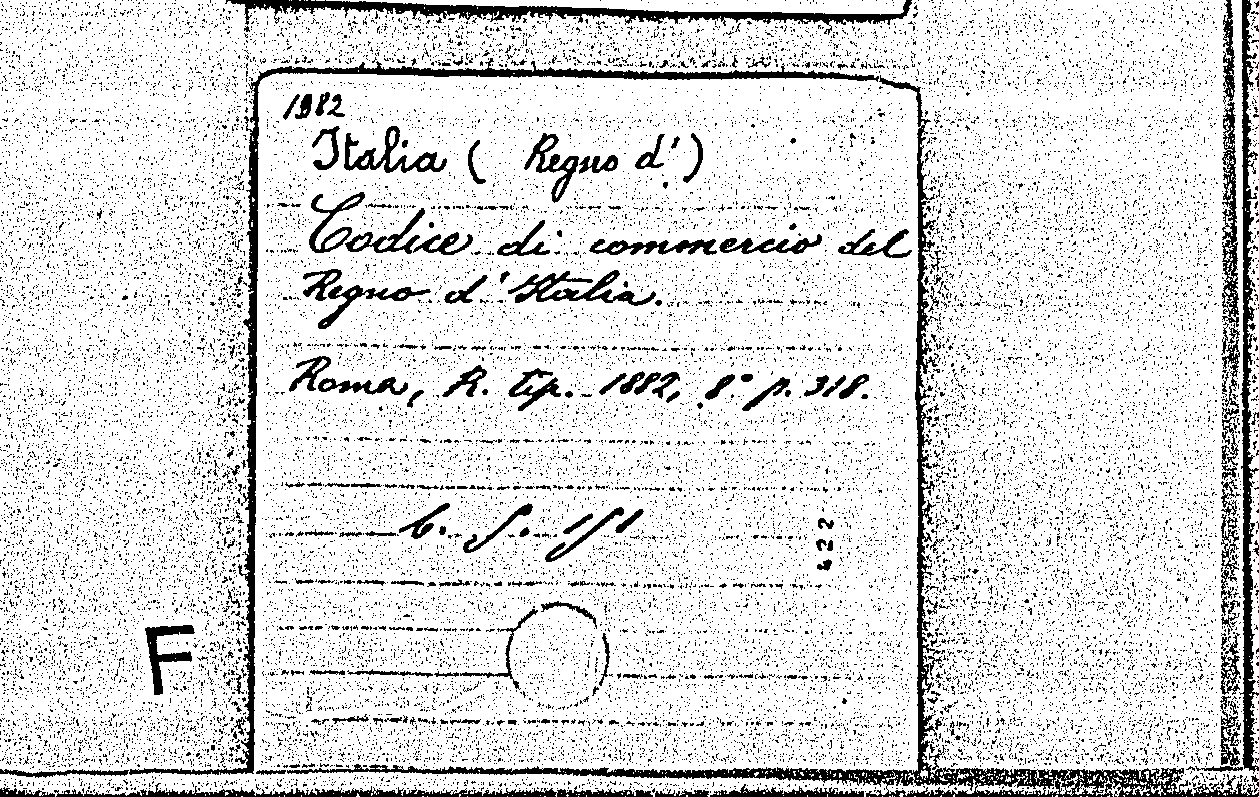 1882
Italia ( Regno d')
Codice di commercio del
Regno d'Italia.
Roma, R. tip. 1882, 8° p. 318.
422
F